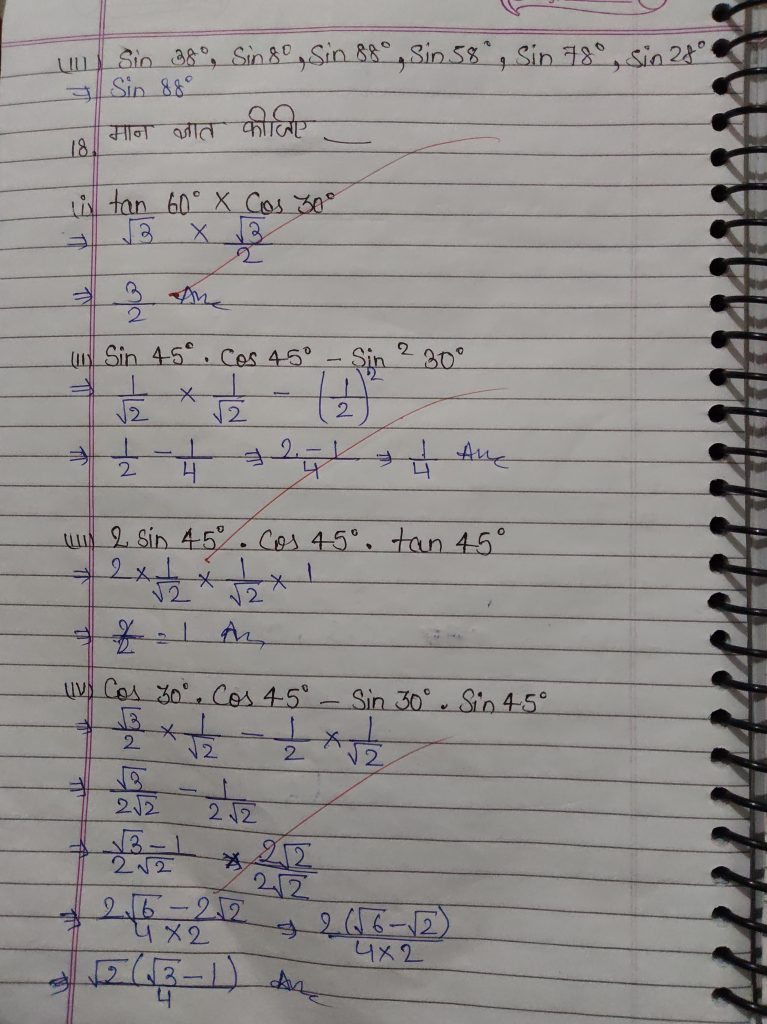 (III) Sin 38°, Sin 8°, Sin 88°, Sin 58°, Sin 78°, Sin 28°
⇒ Sin 88°
18. मान ज्ञात कीजिए —
(i) tan 60° × Cos 30°
⇒ √3 × √3/2
⇒ 3/2 Ans
(II) Sin 45° . Cos 45° – Sin² 30°
⇒ 1/√2 × 1/√2 – (1/2)²
⇒ 1/2 – 1/4 ⇒ 2-1/4 ⇒ 1/4 Ans
(III) 2 Sin 45° . Cos 45° . tan 45°
⇒ 2 × 1/√2 × 1/√2 × 1
⇒ 2/2 = 1 Ans
(IV) Cos 30° . Cos 45° – Sin 30° . Sin 45°
⇒ √3/2 × 1/√2 – 1/2 × 1/√2
⇒ √3/2√2 – 1/2√2
⇒ √3-1/2√2 × 2√2/2√2
⇒ 2√6-2√2/4×2 ⇒ 2(√6-√2)/4×2
⇒ √2(√3-1)/4 Ans